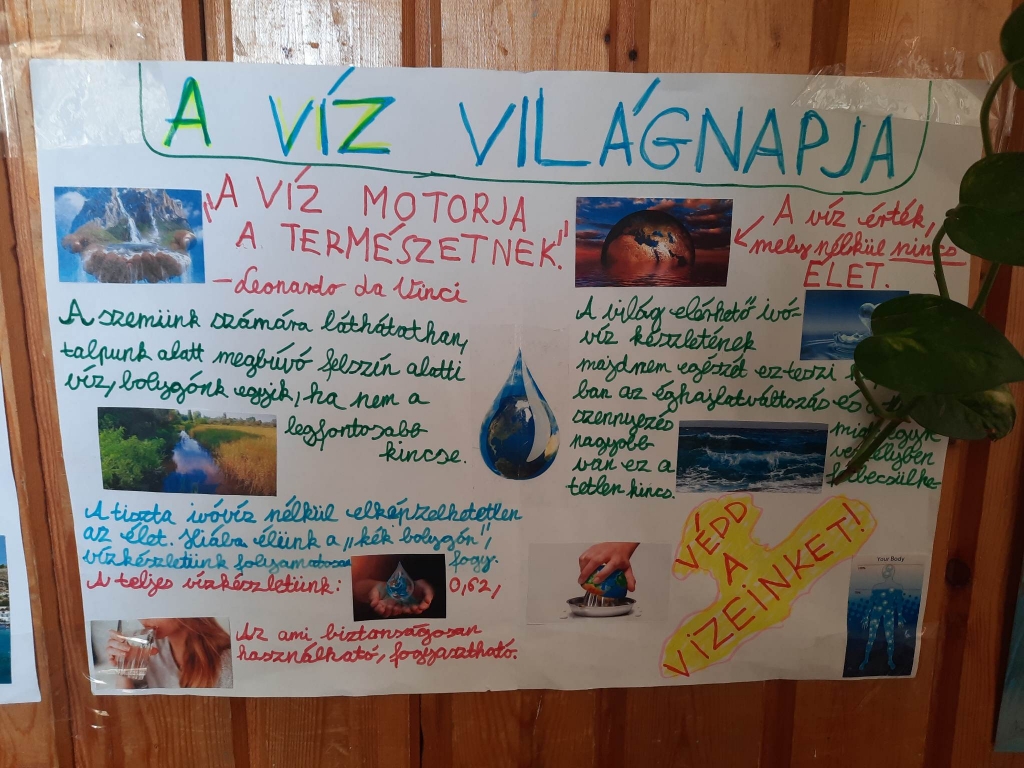 A VÍZ VILÁGNAPJA
"A VÍZ MOTORJA
A TERMÉSZETNEK."
- Leonardo da Vinci
A víz érték,
mely nélkül nincs
ÉLET.
A szemünk számára láthatatlan,
talpunk alatt megbúvó felszín alatti
víz, bolygónk egyik, ha nem a
legfontosabb
kincse.
A világ elérhető ivó-
víz készletének
majdnem egészét ez teszi
ban az éghajlatváltozás és a
szennyezés
nagyobb
van ez a
felbecsülhe-
tetlen kincs.
A tiszta ivóvíz nélkül elképzelhetetlen
az élet. Hiába élünk a "kék bolygón",
vízkészletünk folyamatosan fogy.
A teljes vízkészletünk: 0,62,
Az ami biztonságosan
használható, fogyasztható.
VÉDD
A
VIZEINKET!
Your Body